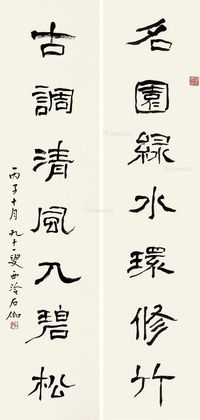 名園緑水環修竹
古調清風入碧松
丙子十月九十一叟西泠石伽